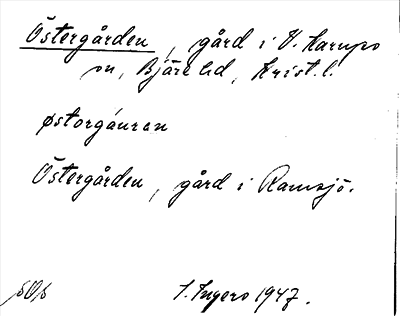 Östergården, gård i V. Karups
sn, Bjäre hd, Krist. l.
østorgáuran
Östergården, gård i Ramsjö.
S. Ingers 1947.